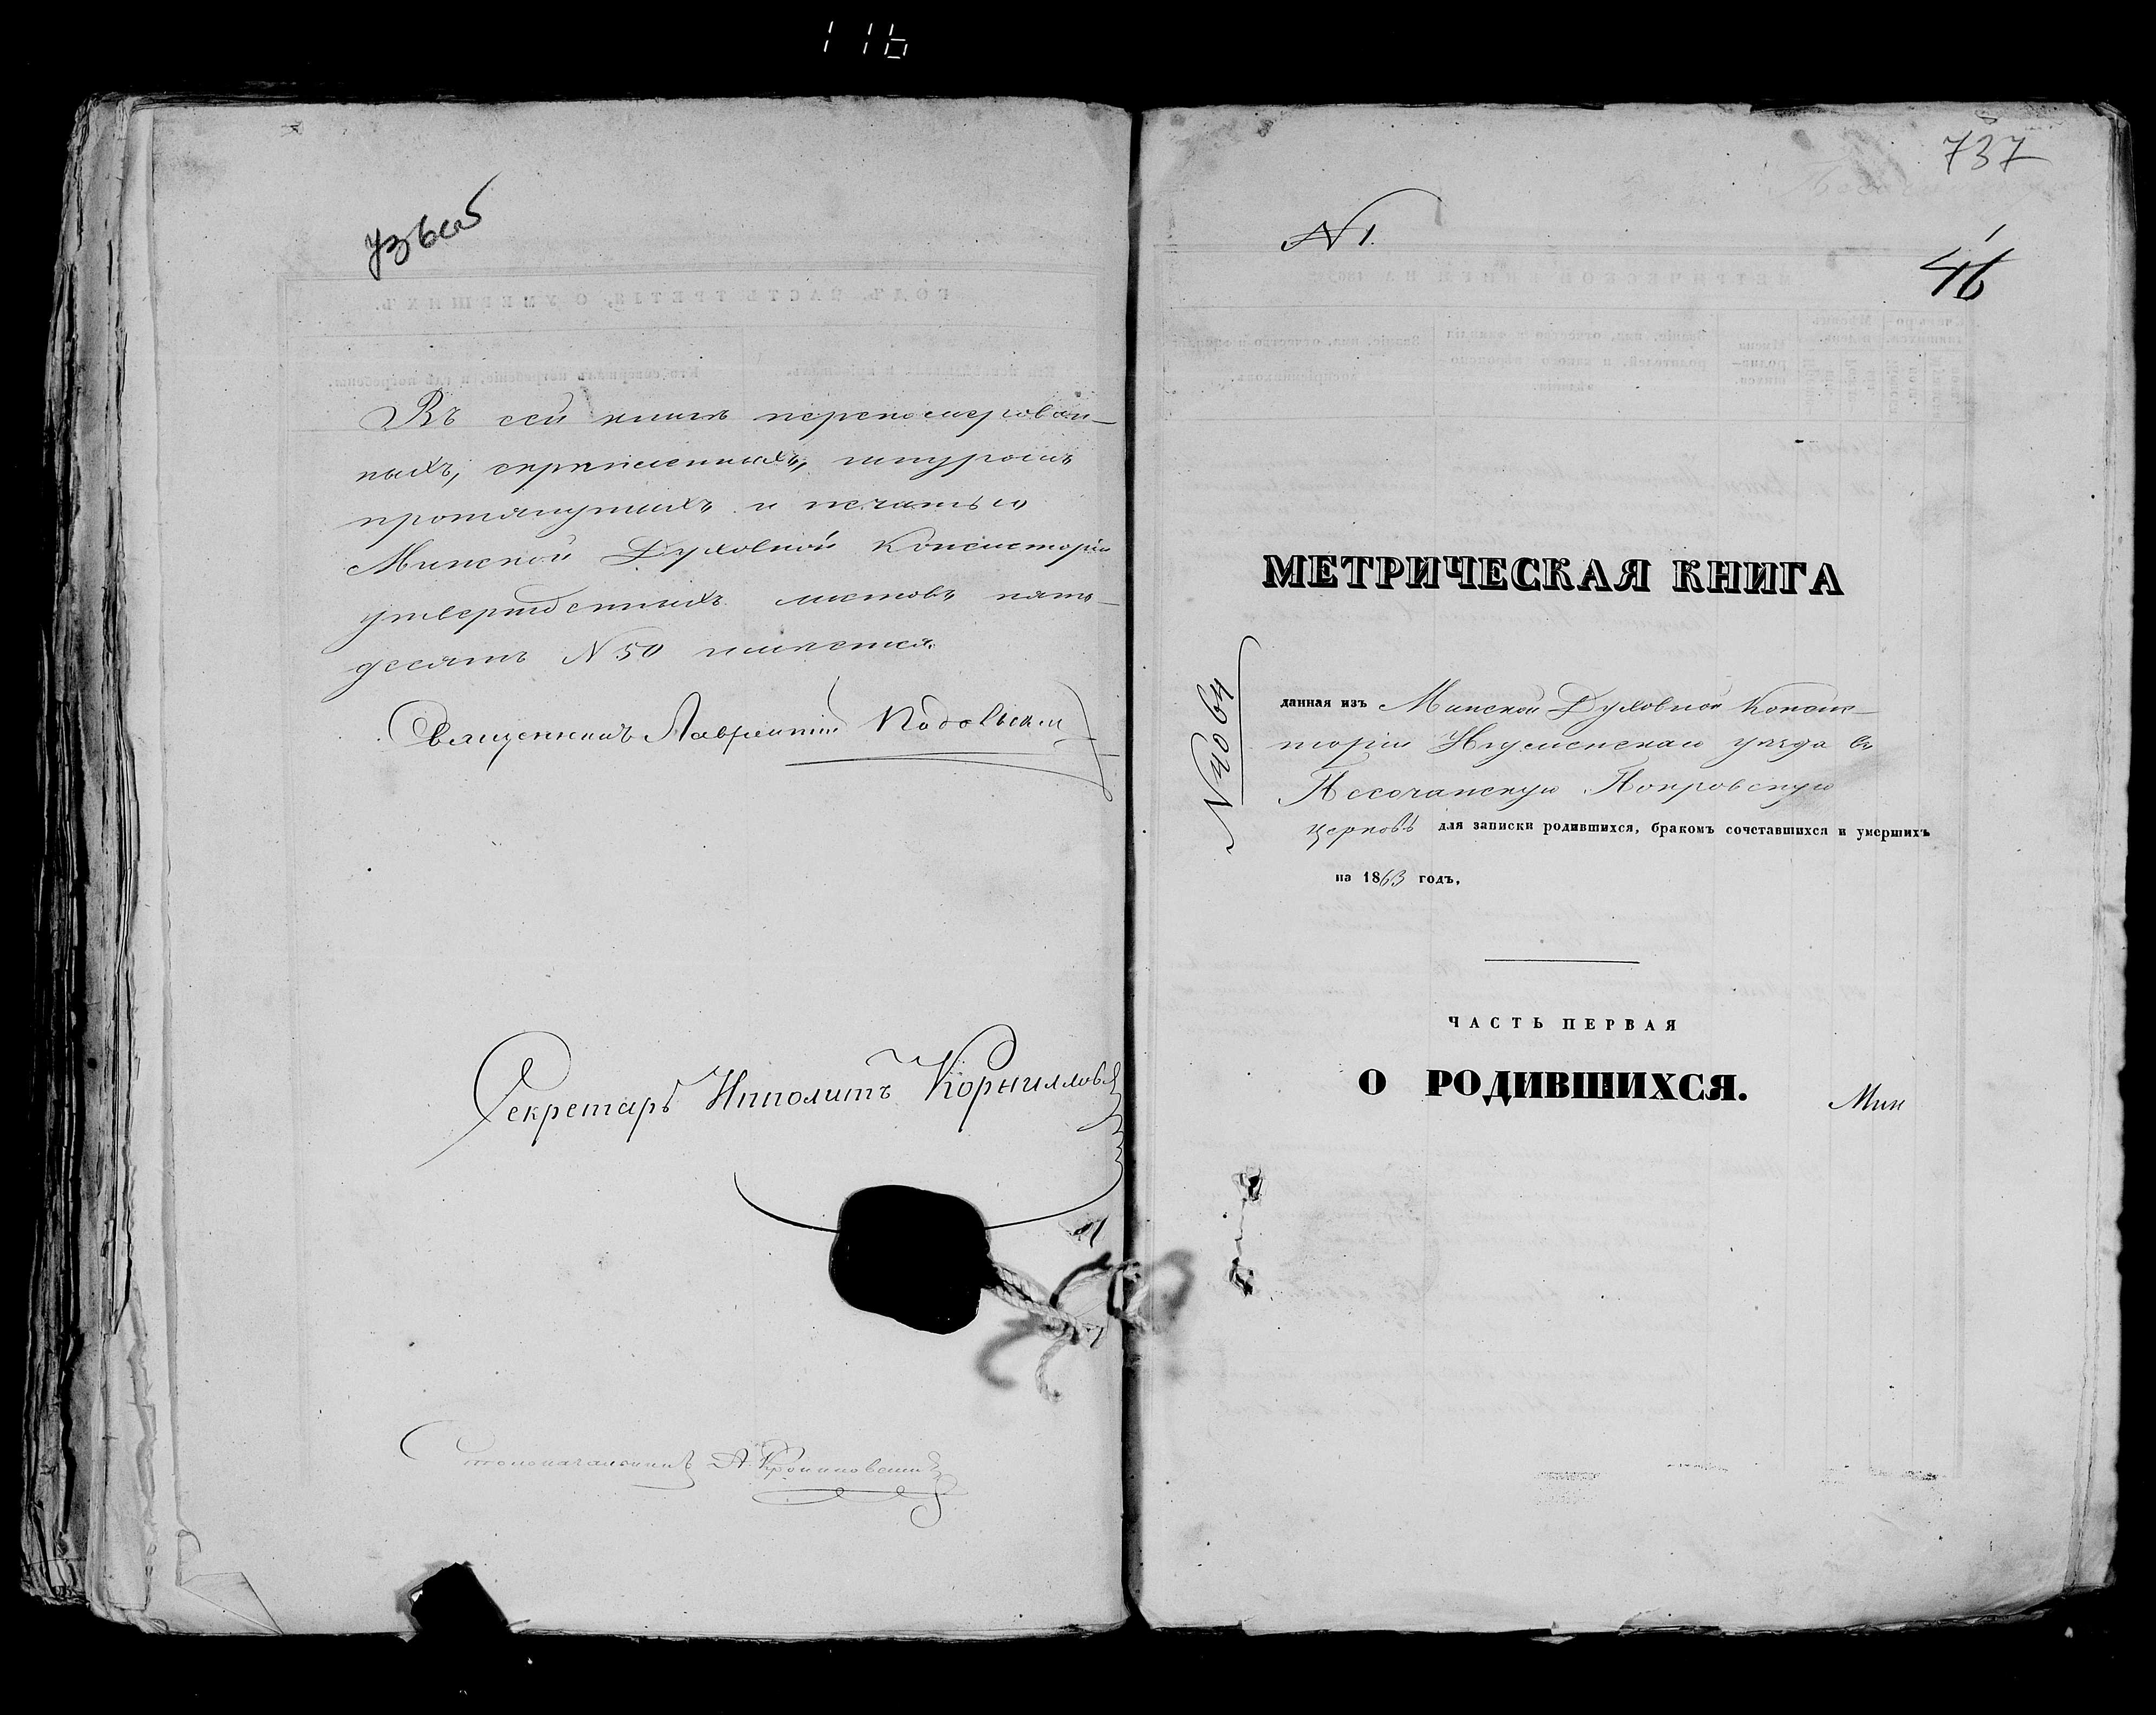 116
Въ сей книгѣ перенумерован-
ныхъ, скрѣпленныхъ, шнуромъ
протянутыхъ и печатью
Минской Духовной Консисторіи
утвержденныхъ листовъ пять-
десятъ N 50 имѣется.
Священникъ Лаврентій
Секретарь Ипполитъ Корниловъ
Столоначальникъ А.
737
N 1.
46
МЕТРИЧЕСКАЯ КНИГА
N 4064
данная изъ Минской Духовной Консис-
торіи Игуменскаго уѣзда въ
Песочанскую Покровскую
церковь для записки родившихся, бракомъ сочетавшихся и умершихъ
на 1863 годъ,
ЧАСТЬ ПЕРВАЯ
О РОДИВШИХСЯ.
Мин